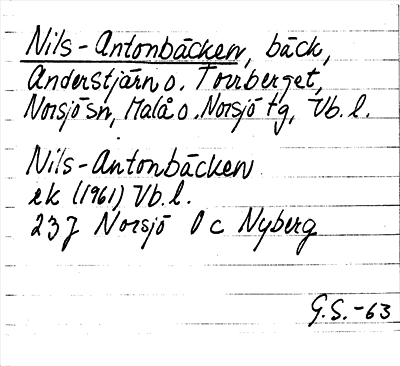 Nils-Antonbäcken, bäck,
Anderstjärn o. Torrberget,
Norsjö sn, Malå o. Norsjö tg, Vb. l.
Nils-Antonbäcken
ek (1961) Vb. l.
23J Norsjö 0 c Nyberg
G.S.-63